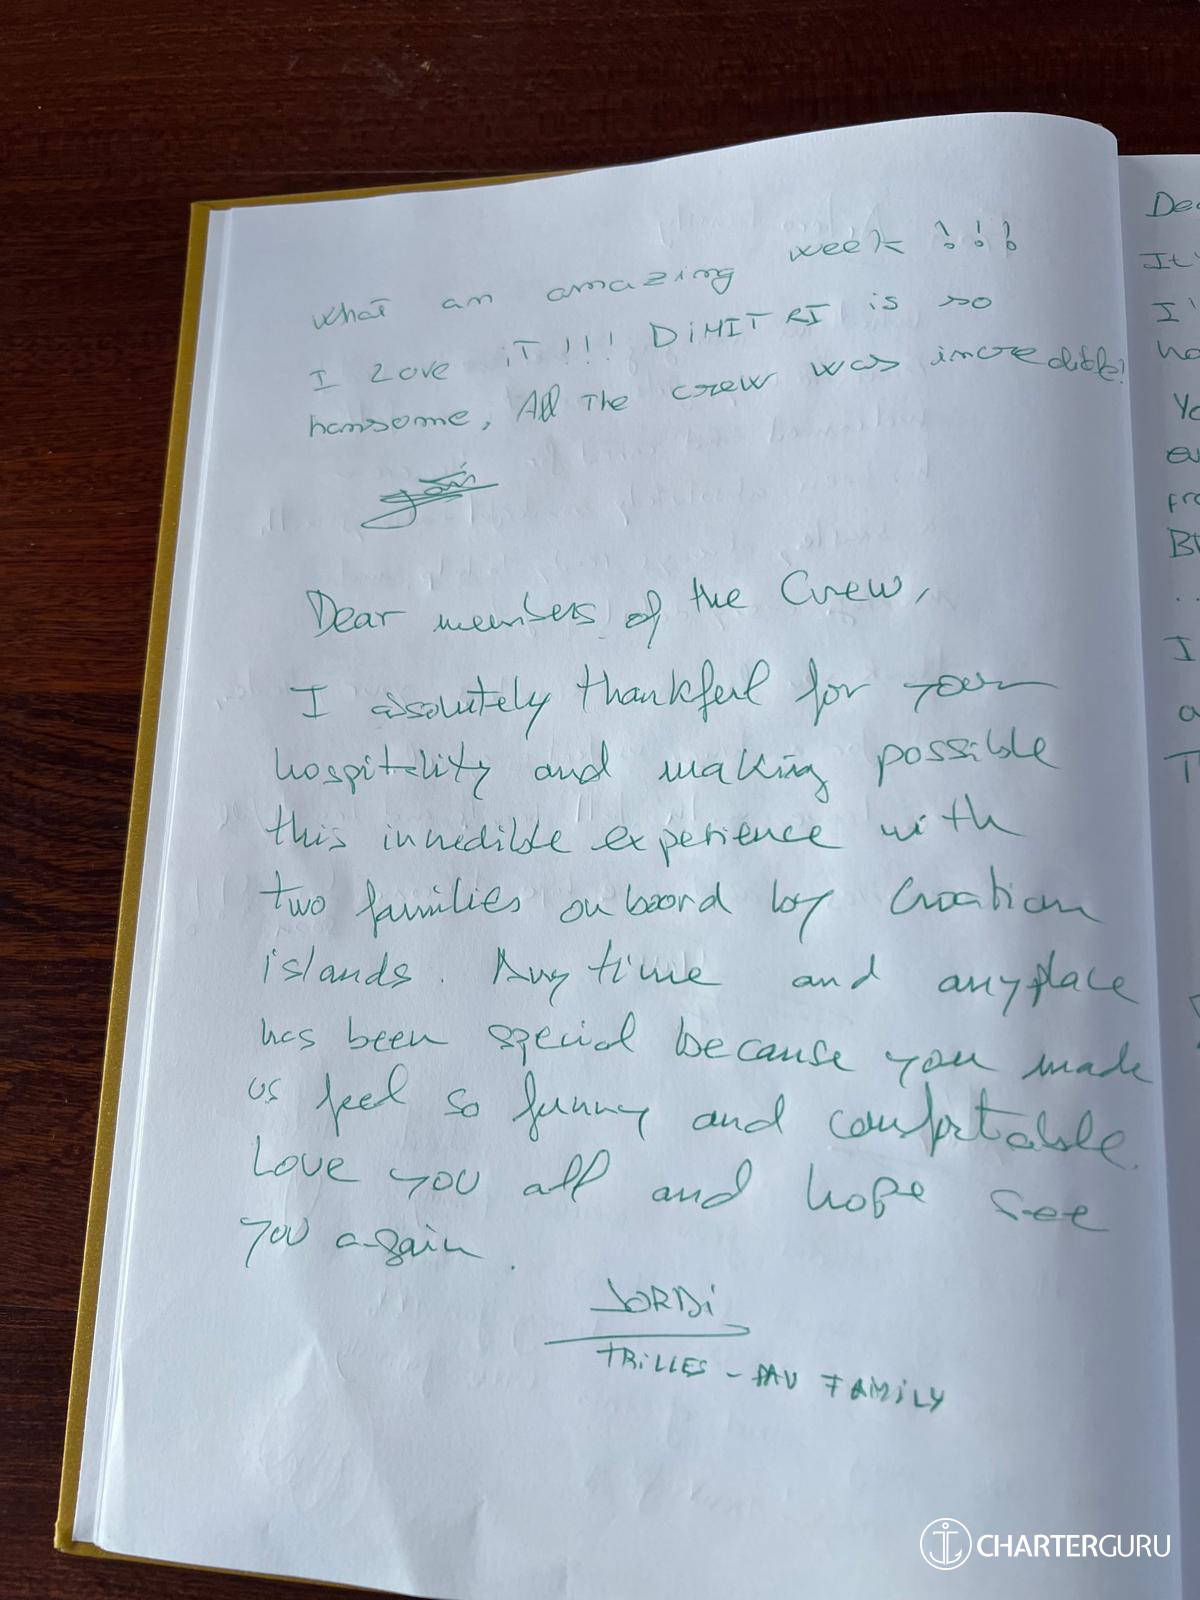 What an amazing week !!!
I Love iT!!! DiMITRI is so
hansome, All The crew was incredible!
Dear members of the Crew,
I absolutely thankful for your
hospitality and making possible
this incredible experience with
two families on board by Croatian
islands. Any time and any place
has been special because you made
us feel so funny and comfortable.
Love you all and hope see
you again.
JORDi
TRiLLES - PAU FAMiLY
Dea
It'
I'
ha
Yo
ev
fro
Bt
...
I
a
T
CHARTERGURU